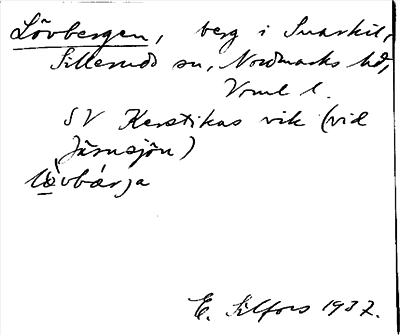 Lövbergen, berg i Snarkil,
Silleruds sn, Nordmarks hd,
Vrml l.
SV Kerstikas vik (vid
Järnsjön)
lövbärja
E. Silfors 1937.